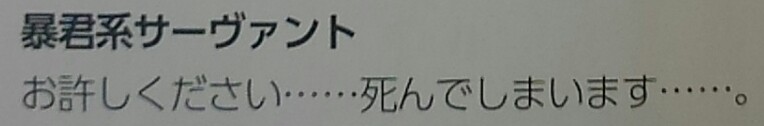 暴君系サーヴァント
お許しください……死んでしまいます……。